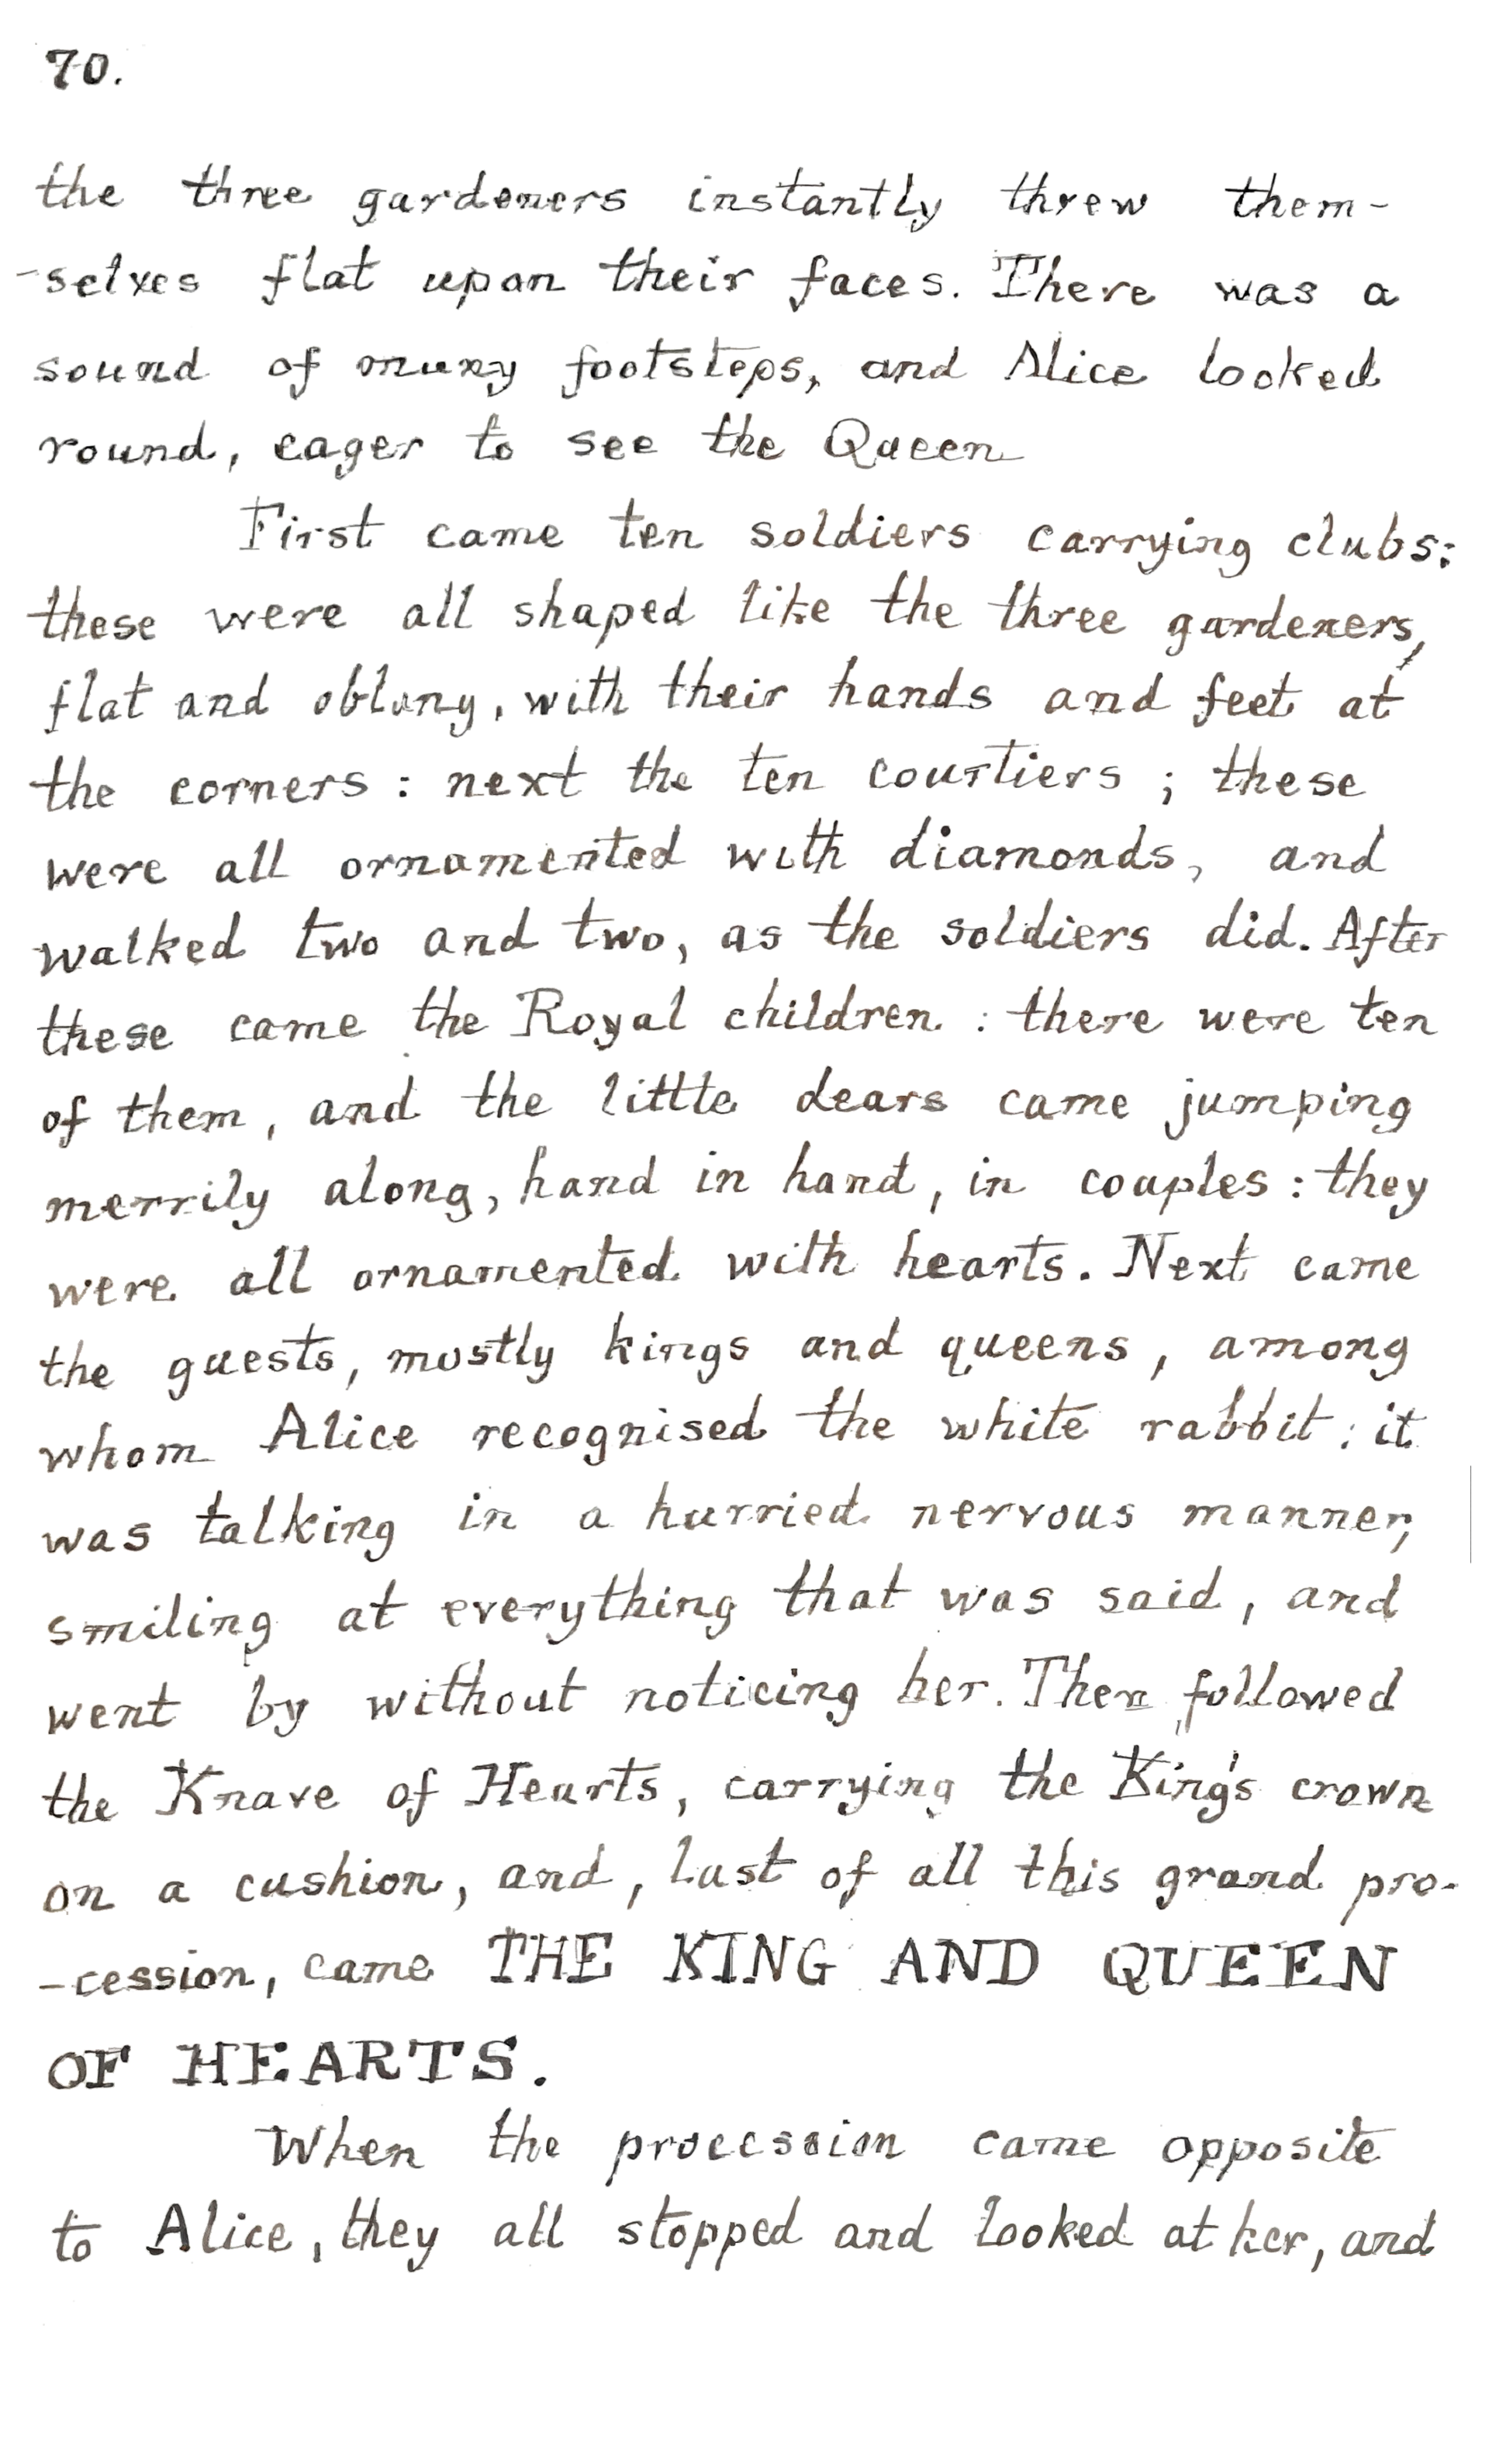 70.
the three gardeners instantly threw them-
-selves flat upon their faces. There was a
sound of many footsteps, and Alice looked
round, eager to see the Queen
First came ten soldiers carrying clubs:
these were all shaped like the three gardeners,
flat and oblong, with their hands and feet at
the corners: next the ten courtiers; these
were all ornamented with diamonds, and
walked two and two, as the soldiers did. After
these came the Royal children: there were ten
of them, and the little dears came jumping
merrily along, hand in hand, in couples: they
were all ornamented with hearts. Next came
the guests, mostly kings and queens, among
whom Alice recognised the white rabbit: it
was talking in a hurried nervous manner,
smiling at everything that was said, and
went by without noticing her. Then followed
the Knave of Hearts, carrying the King's crown
on a cushion, and, last of all this grand pro-
-cession, came THE KING AND QUEEN
OF HEARTS.
When the procession came opposite
to Alice, they all stopped and looked at her, and